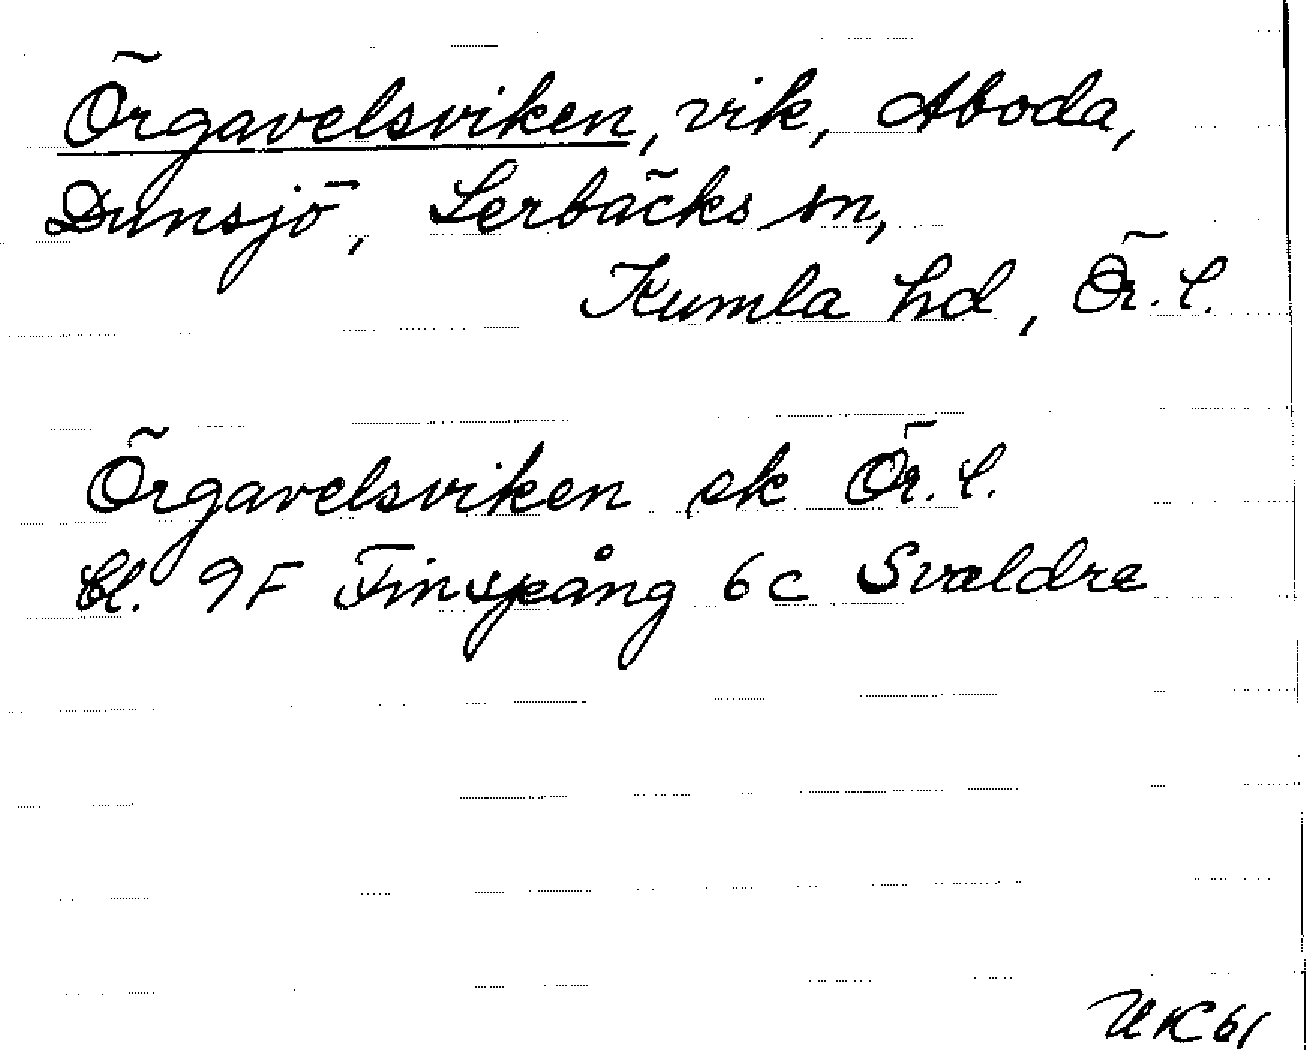 Örgavelsviken, vik, Aboda,
Dunsjö, Lerbäcks sn,
Kumla hd, Ör. l.
Örgavelsviken ek Ör. l.
bl. 9F Finspång 6c Svaldre
UK 61